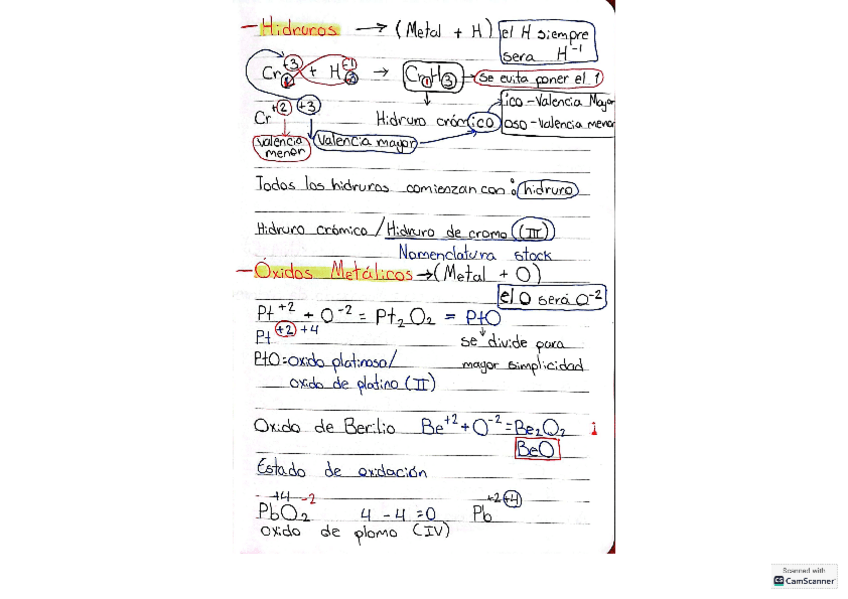 - Hidruros → (Metal + H) el H siempre
sera H⁻¹
Cr⁺³ + H⁻¹ → Cr₁H₃ Se evita poner el 1
Cr⁺² ⁺³ Hidruro crómico ico - Valencia Mayor
oso - Valencia menor
Valencia menor Valencia mayor
Todos los hidruros comienzan con: hidruro
Hidruro crómico / Hidruro de cromo (III)
Nomenclatura stock
- Óxidos Metálicos → (Metal + O)
el O será O⁻²
Pt⁺² + O⁻² = Pt₂O₂ = PtO
Pt⁺² ⁺⁴ se divide para
PtO = oxido platinoso/ mayor simplicidad
oxido de platino (II)
Oxido de Berilio Be⁺² + O⁻² = Be₂O₂
BeO
Estado de oxidación
+4 -2
PbO₂ 4 - 4 = 0 Pb⁺² ⁺⁴
oxido de plomo (IV)
Scanned with
CS CamScanner